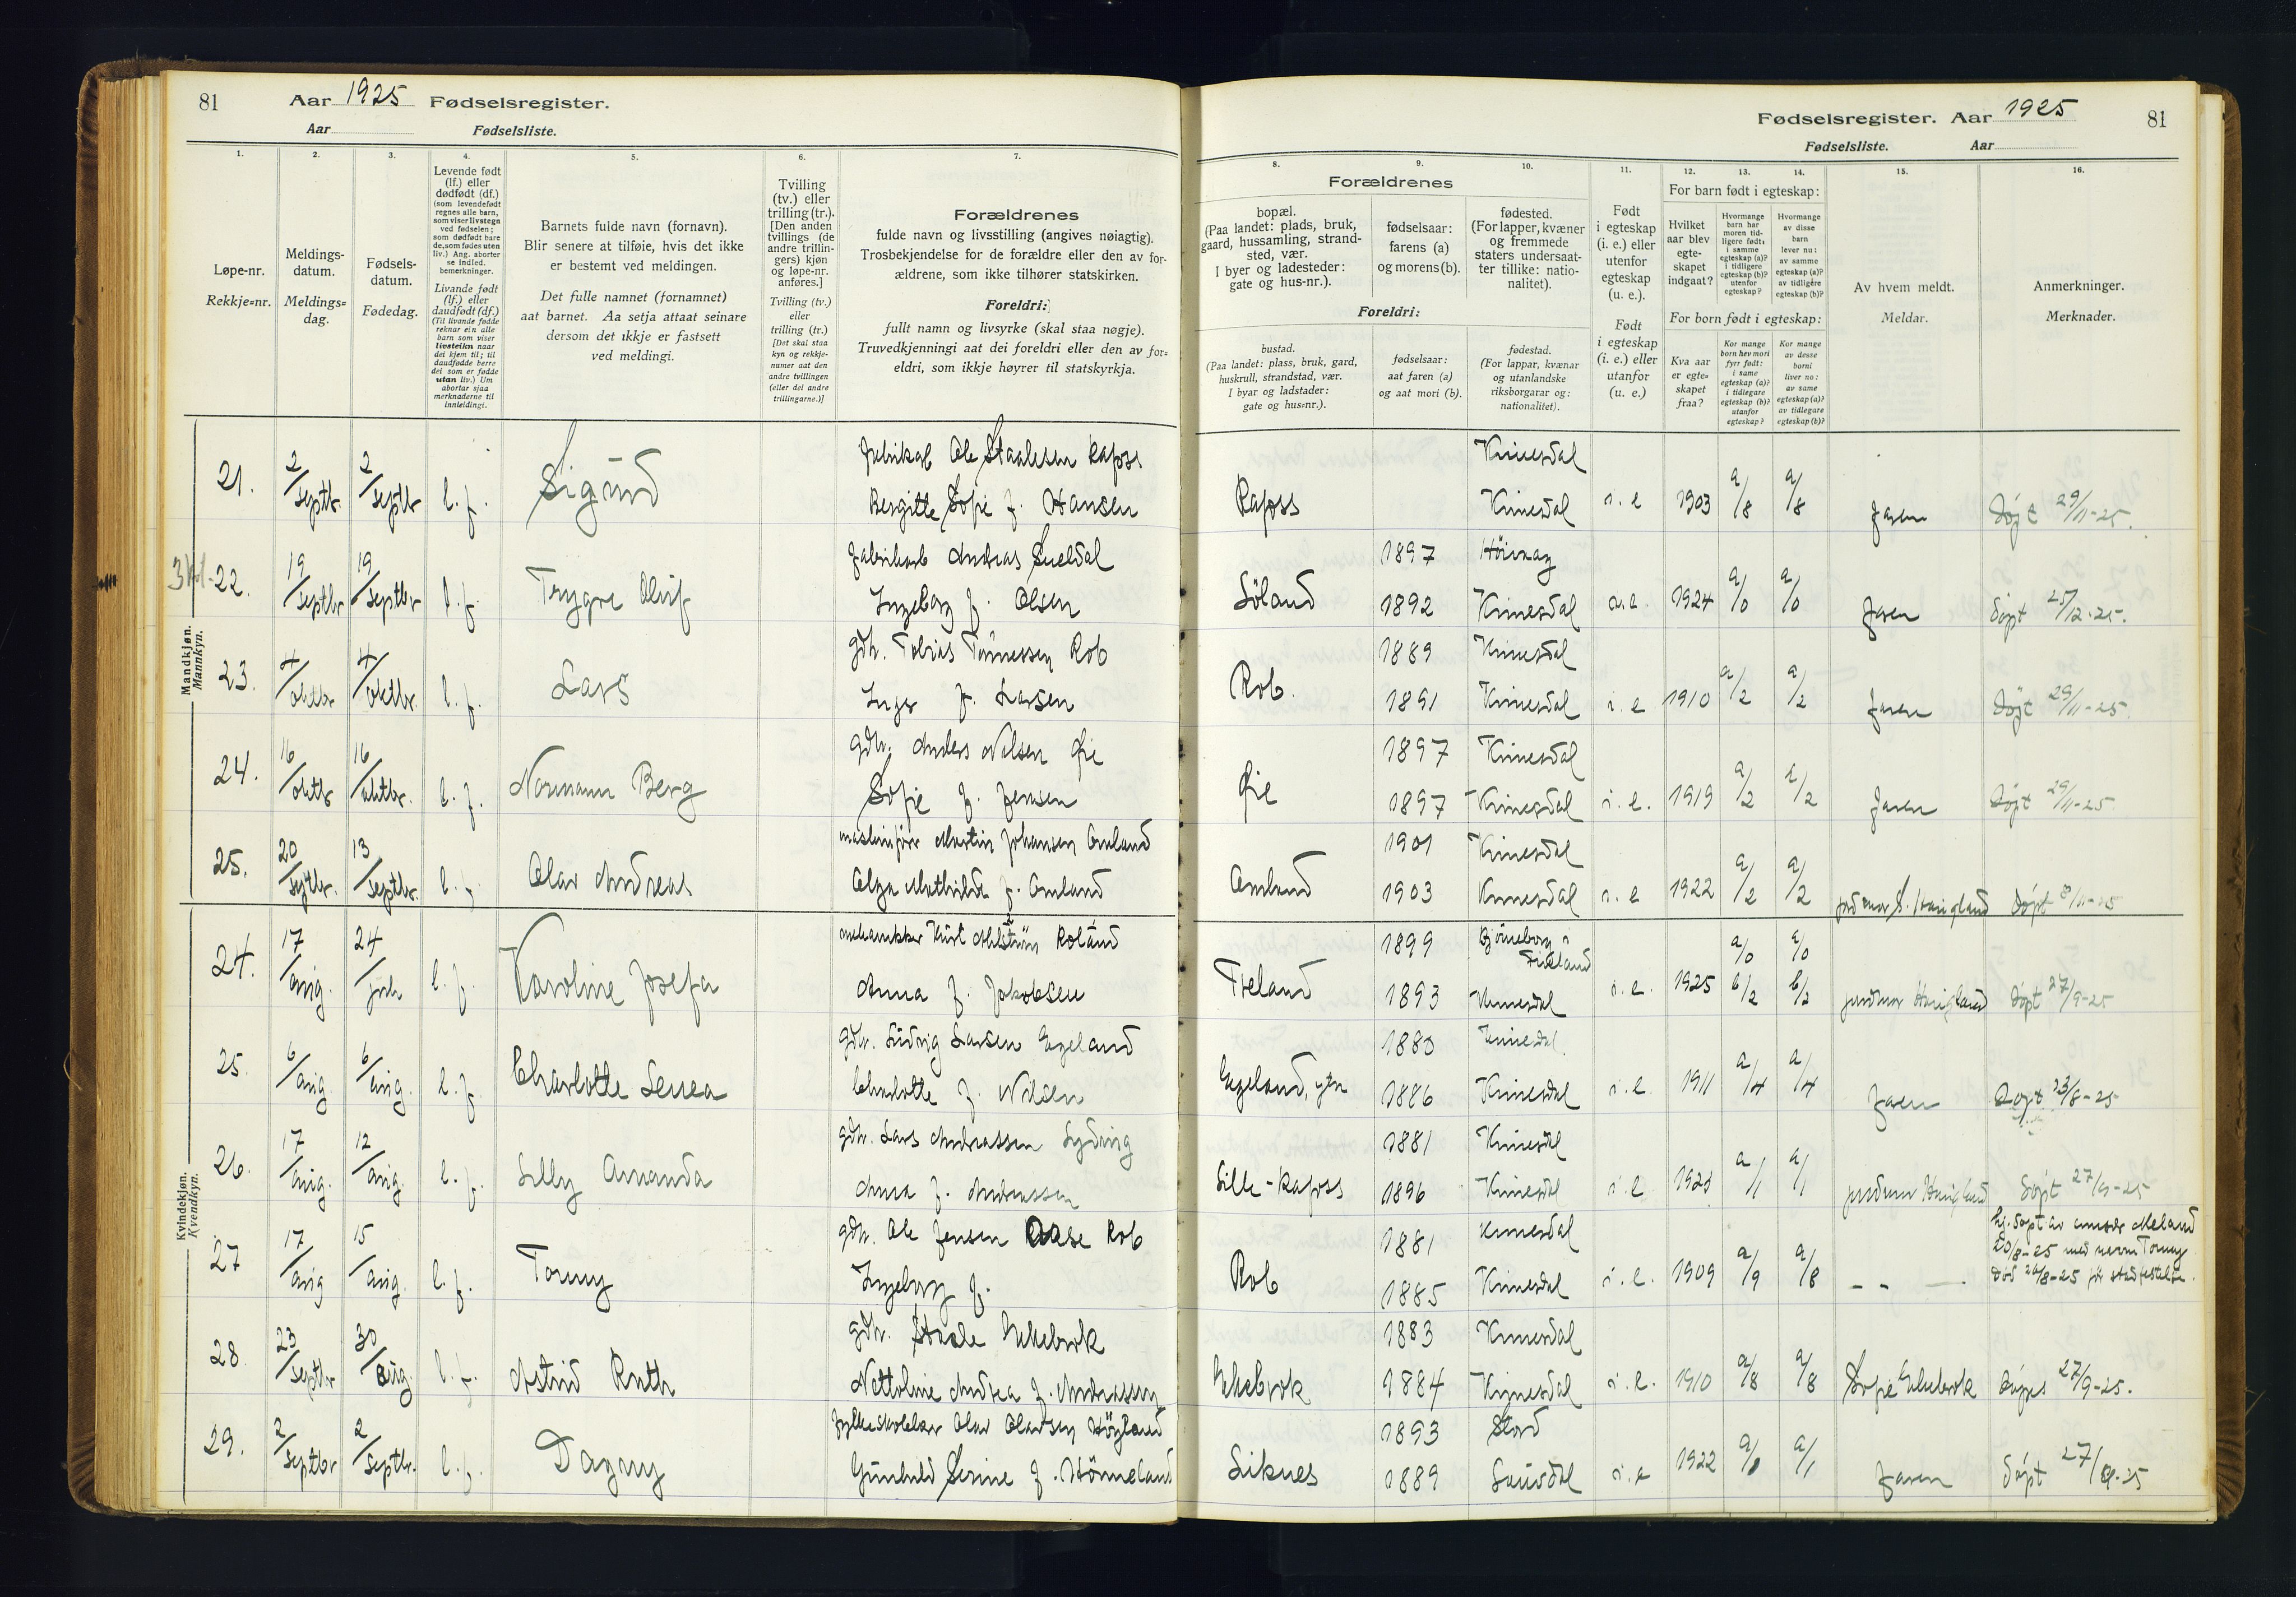 81
Aar 1925 Fødselsregister.
Aar
Fødselsliste.
1.
2.
3.
4.
5.
6.
7.
Løpe-nr.
Rekkje=nr.
Meldings-
datum.
Meldings=
dag.
Fødsels-
datum.
Fødedag.
Levende født
(lf.) eller
dødfødt (df.)
(som levendefødt
regnes alle barn,
som viser livstegn
ved fødselen;
som dødfødt bare
de, som fødes uten
liv.) Ang. aborter
se indled.
bemerkninger.
Livande født
(lf.) eller
daudfødt (df.)
(Til livande fødde
reknar ein alle
barn som viser
livsteikn naar
dei kjem til; til
daudfødde berre
dei som er fødde
utan liv.) Um
abortar sjaa
merknaderne til
innleidingi.
Barnets fulde navn (fornavn).
Blir senere at tilføie, hvis det ikke
er bestemt ved meldingen.
Det fulle namnet (fornamnet)
aat barnet. Aa setja attaat seinare
dersom det ikkje er fastsett
ved meldingi.
Tvilling
(tv.) eller
trilling (tr.).
[Den anden
tvillings (de
andre trillin-
gers) kjøn
og løpe-nr.
anføres.]
Tvilling (tv.)
eller
trilling (tr.)
[Det skal staa
kyn og rekkje-
numer aat den
andre tvillingen
(eller dei andre
trillingarne.)]
Forældrenes
fulde navn og livsstilling (angives nøiagtig).
Trosbekjendelse for de forældre eller den av for-
ældrene, som ikke tilhører statskirken.
Foreldri:
fullt namn og livsyrke (skal staa nøgje).
Truvedkjenningi aat dei foreldri eller den av for=
eldri, som ikkje høyrer til statskyrkja.
Mandkjøn.
Mannkyn.
21.
2/septbr.
2/septbr
l. f.
Sigurd
Ole Staalesen Rafoss
Bergitte Sofie f. Hansen
22.
19/septbr
19/septbr
l. f.
Trygve Oluf
Andreas Sueldal
Ingeborg f. Olsen
23.
4/oktbr
4/oktbr.
l. f.
Lars
gdbr. Tobias Tønnessen Rob
Inger f. Larsen
24.
16/oktbr
16/oktbr.
l. f.
Normann Berg
gdbr. Anders Nilsen Øie
Sofie f. Jensen
25.
20/septbr.
13/septbr.
l. f.
Olav Andreas
Martin Johansen Omland
Olga Mathilde f. Omland
Kvindekjøn.
Kvendkyn.
24.
17/aug.
24/juli
l. f.
Karoline Josefa
mekanikker Kurt Ahlström Roland
Anna f. Jakobsen
25.
6/aug.
6/aug.
l. f.
Charlotte Lenea
gdbr. Ludvig Larsen Egeland
Charlotte f. Nilsen
26.
17/aug.
12/aug.
l. f.
Lilly Amanda
gdbr. Lars Andreassen
Anna f. Andreassen
27
17/aug
15/aug.
l. f.
Tonny
gdbr. Ole Jensen Aase Rob
Ingeborg f.
28.
23/septbr
30/aug.
l. f.
Astrid Ruth
gdbr. Staale Eikebrok
Nettoline Andrea f. Andreassen
29.
2/septbr
2/septbr.
l. f.
Dagny
Olav Olavsen Høyland
Gunhild Serine f. Hønneland
Fødselsregister. Aar 1925
81
Fødselsliste. Aar
8.
9.
10.
11.
12.
13.
14.
15.
16.
Forældrenes
bopæl.
(Paa landet: plads, bruk,
gaard, hussamling, strand-
sted, vær.
I byer og ladesteder:
gate og hus-nr.).
fødselsaar:
farens (a)
og morens (b).
fødested.
(For lapper, kvæner
og fremmede
staters undersaat-
ter tillike: natio-
nalitet).
Foreldri:
bustad.
(Paa landet: plass, bruk, gard,
huskrull, strandstad, vær.
I byar og ladstader:
gate og hus=nr.).
fødselsaar:
aat faren (a)
og aat mori (b).
fødestad.
(For lappar, kvænar
og utanlandske
riksborgarar og:
nationalitet).
Født
i egteskap
(i. e.) eller
utenfor
egteskap
(u. e.).
Født
i egteskap
(i. e.) eller
utanfor
(u. e.)
For barn født i egteskap:
Hvilket
aar blev
egte-
skapet
indgaat?
Hvormange
barn har
moren tid-
ligere født:
i samme
egteskap (a)?
i tidligere
egteskap (b)?
utenfor
egteskap?
Hvormange
av disse
barn
lever nu:
av samme
egteskap (a)?
av tidligere
egteskap (b)?
For born født i egteskap:
Kva aar
er egte=
skapet
fraa?
Kor mange
born hev mori
fyrr født:
i same
egteskap (a)?
i tidlegare
egteskap (b)?
utanfor
egteskap?
Kor mange
av desse
borni
liver no:
av same
egteskap (a)?
av tidlegare
egteskap (b)?
Av hvem meldt.
Meldar.
Anmerkninger.
Merknader.
Kvinesdal
Rafoss
Kvinesdal
i. e
1903
a/8
a/8
Faren
Døpt 29/11-25.
1897
Høivaag
Søland
1892
Kvinesdal
1924
a/0
a/0
Faren
Døpt 25/12-25.
1889
Kvinesdal
Rob.
1891
Kvinesdal
i. e
1910
a/2
a/2
Faren
Døpt 29/11-25.
1897
Kvinesdal
Øie
1897
Kvinesdal
i. e.
1919
a/2
a/2
Faren
Døpt 29/11-25
1901
Kvinesdal
Omland
1903
Kvinesdal
i. e
1922
a/2
a/2
Døpt 8/11-25
1899
Bjørneborg i
Finland
a/0
a/0
Træland
1893
Kvinesdal
i. e.
1925
b/2
b/2
jordmor Haugland
Døpt 27/9-25
1880
Kvinesdal
Egeland, ytr
1886
Kvinesdal
i. e
1911
a/4
a/4
Faren
Døpt 23/8-25
1881
Kvinesdal
Lille-Rafoss
1896
Kvinesdal
i. e
a/1
a/1
jordmor Haugland
Døpt 27/9-25
1881
Kvinesdal
Rob
1885
Kvinesdal
i. e.
1909
a/9
a/8
hj. døpt av Meland
20/8-25 med navn Tonny
død 20/8-25 før stadfestelse.
1883
Kvinesdal
Eikebrok
1884
Kvinesdal
i. e.
1910
a/8
a/8
Sofie Eikebrok
Døpt 27/9-25.
1893
Stord
Liknes
1889
Laudal
i. e
1922
a/1
Faren
Døpt 27/9-25